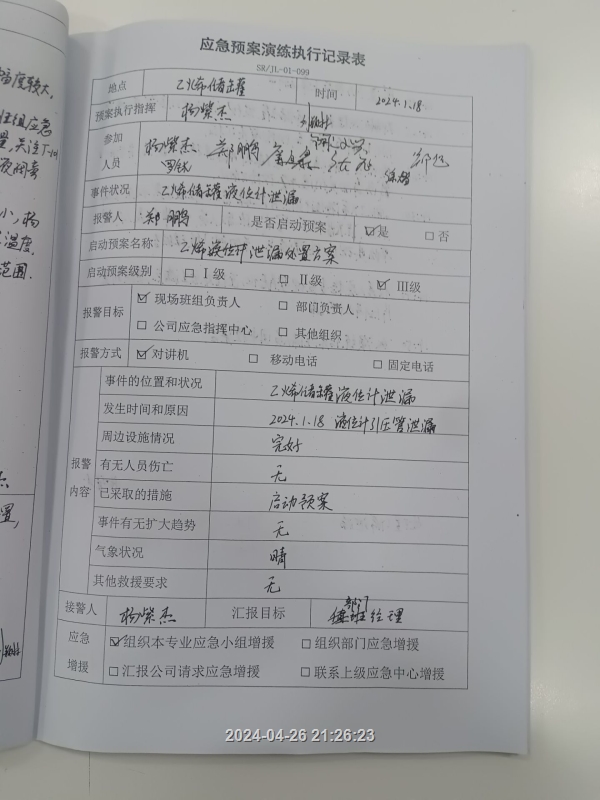 应急预案演练执行记录表
SR/JL-01-099
地点 乙烯储罐 时间 2024.1.18
预案执行指挥 杨紫杰
参加人员 杨紫杰 郑鹏
事件状况 乙烯储罐液位计泄漏
报警人 郑鹏 是否启动预案 ☑是 □否
启动预案名称 乙烯液位计泄漏处置方案
启动预案级别 □ Ⅰ级 □ Ⅱ级 ☑ Ⅲ级
报警目标 ☑ 现场班组负责人 □ 部门负责人
□ 公司应急指挥中心 □ 其他组织
报警方式 ☑ 对讲机 □ 移动电话 □ 固定电话
报警内容
事件的位置和状况 乙烯储罐液位计泄漏
发生时间和原因 2024.1.18 液位计引压管泄漏
周边设施情况 完好
有无人员伤亡 无
已采取的措施 启动预案
事件有无扩大趋势 无
气象状况 晴
其他救援要求 无
接警人 杨紫杰 汇报目标 部门经理
应急增援 ☑组织本专业应急小组增援 □组织部门应急增援
□汇报公司请求应急增援 □联系上级应急中心增援
幅度较大,
小,杨
温度.
范围.
置,
2024-04-26 21:26:23